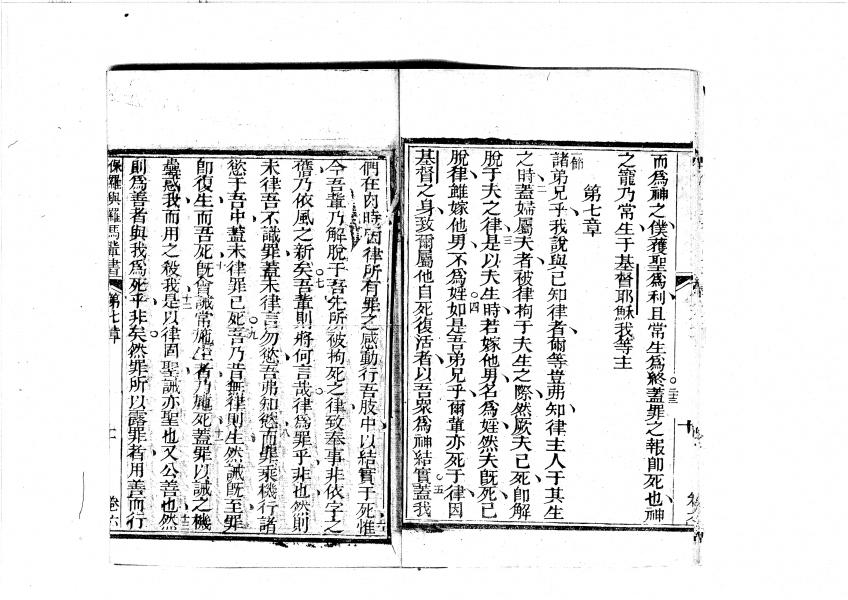 而爲神之僕獲聖爲利且常生爲終蓋罪之報卽死也神
之寵乃常生于基督耶穌我等主
第七章
諸弟兄乎我說與已知律者爾等豈弗知律主人于其生
之時蓋婦屬夫者被律拘于夫生之際然厥夫已死卽解
脫于夫之律是以夫生時若嫁他男名爲婬然夫旣死已
脫律雖嫁他男不爲婬如是吾弟兄乎爾輩亦死于律因
基督之身致爾屬他自死復活者以吾衆爲神結實蓋我
們在肉時因律所有罪之感動行吾肢中以結實于死惟
今吾輩乃解脫于吾先所被拘死之律致奉事非依字之
舊乃依風之新矣吾輩則將何言哉律爲罪乎非也然則
未律吾不識罪蓋未律言勿慾吾弗知慾而罪乘機行諸
慾于吾中蓋未律罪已死吾乃昔無律則生然誡旣至罪
卽復生而吾死旣會誡常施生者乃施死蓋罪以誡之機
蠱惑我而用之殺我是以律固聖誡亦聖也又公善也然
則爲善者與我爲死乎非矣然罪所以露罪者用善而行
保羅與羅馬輩書 第七章 卷六